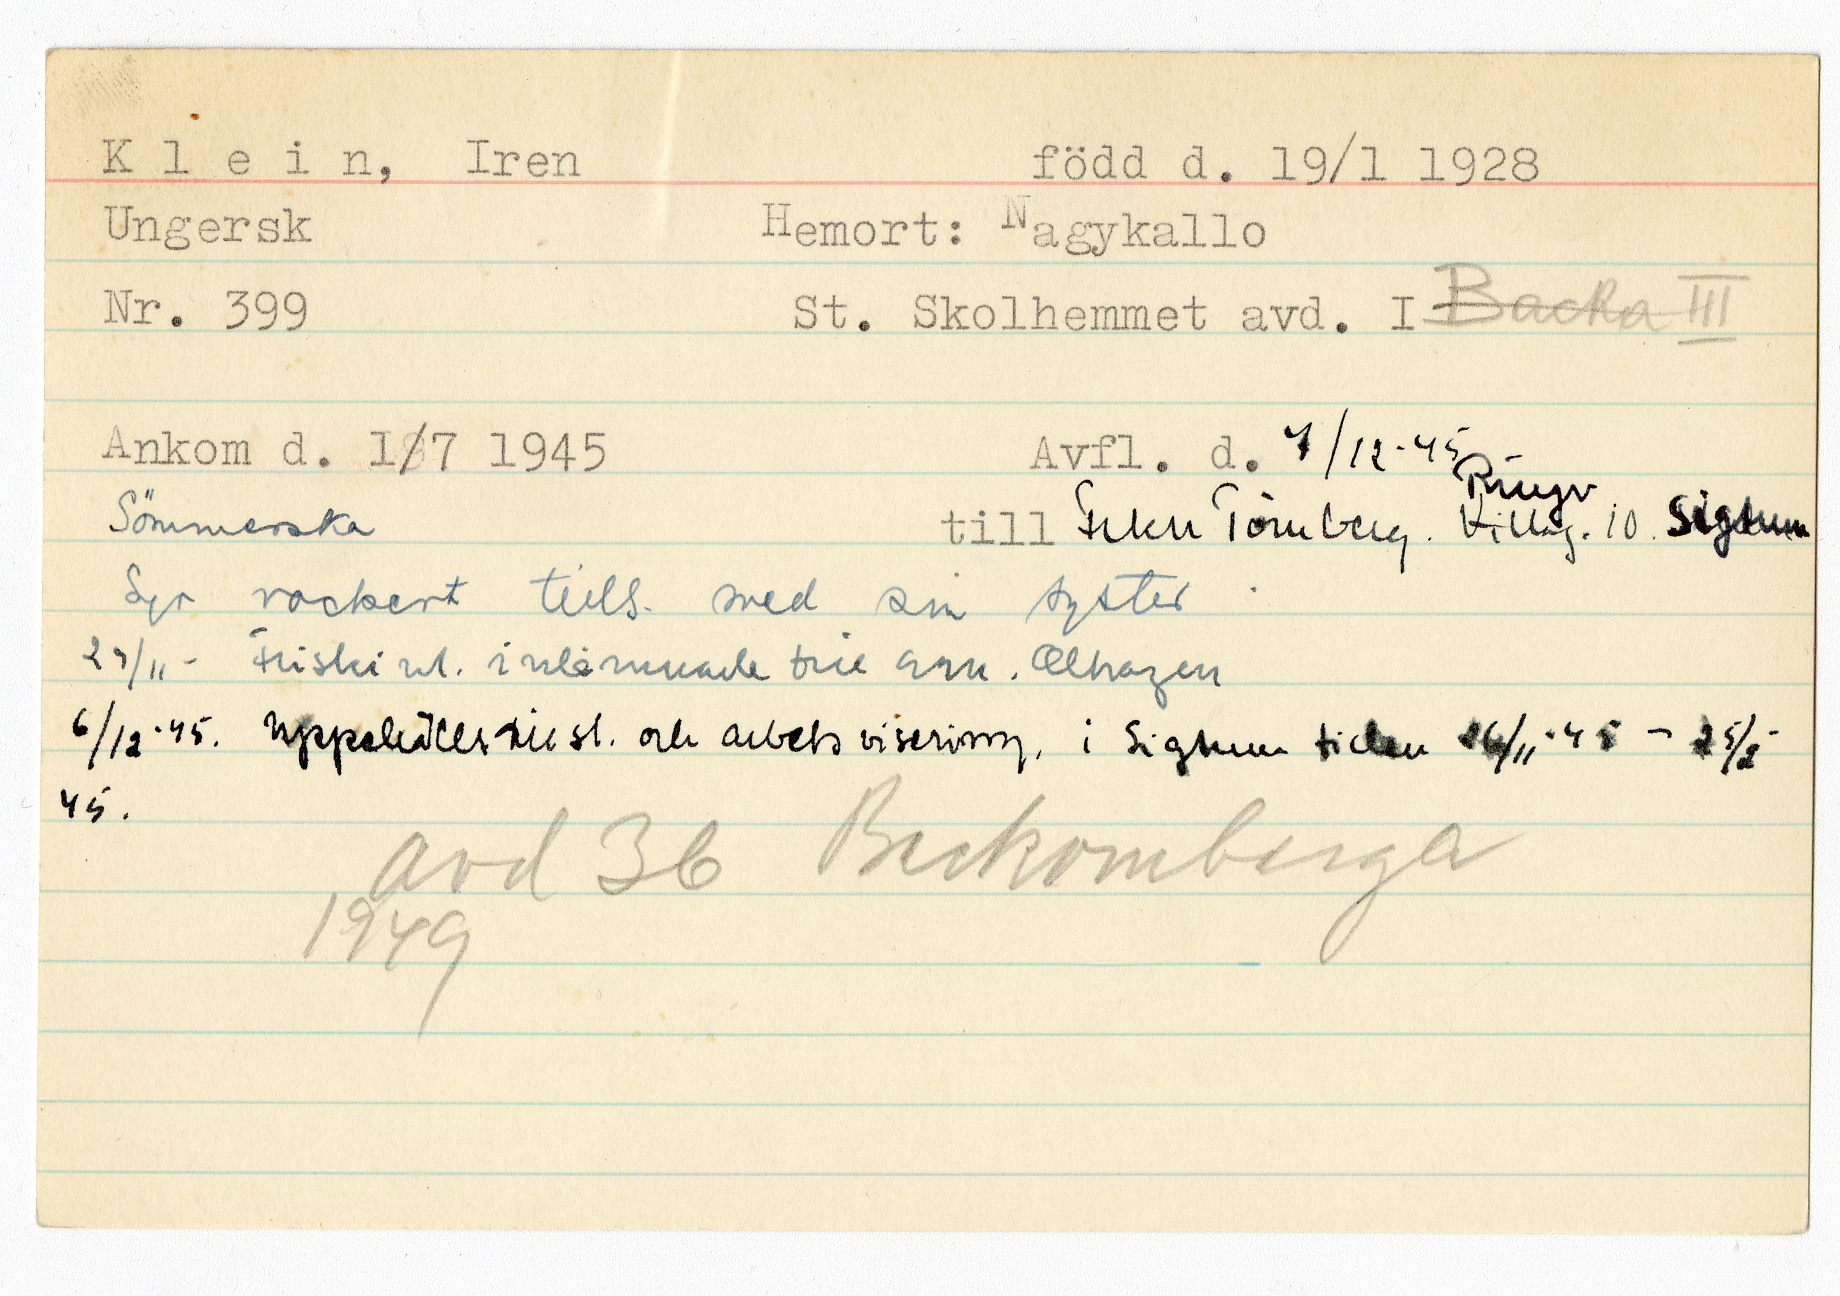 Klein, Iren född d. 19/1 1928
Ungersk Hemort: Nagykallo
Nr. 399 St. Skolhemmet avd. I Backa III
Ankom d. 1/7 1945 Avfl. d. 7/12-45
Sömmerska till Törnberg. 10. Sigtuna
Syr vackert tills. med sin syster.
27/11- inlämnade till
6/12-45. Uppehållstillst. och arbetsvisering. i Sigtuna tiden 26/11-45 - 25/2-
45.
avd 36 Beckomberga
1949